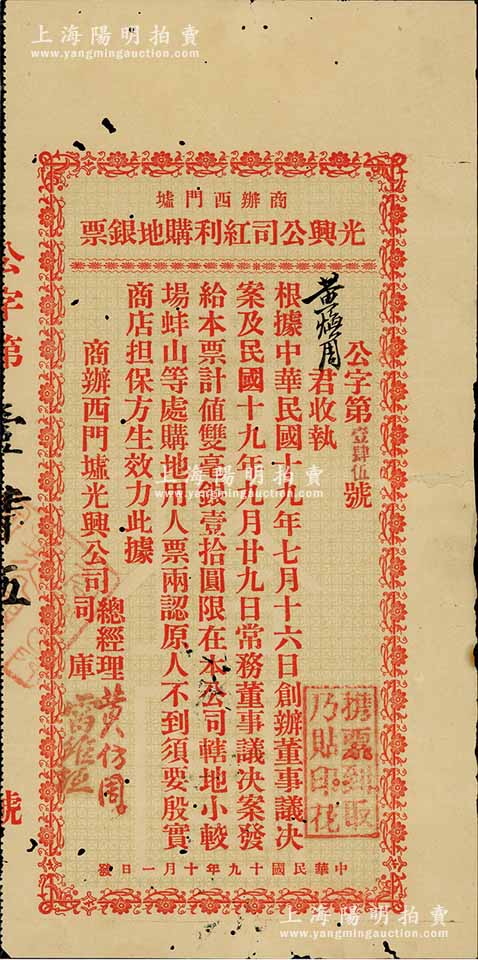 上海陽明拍賣
www.yangmingauction.com
商辦西門墟
光興公司紅利購地銀票
公字第壹肆伍號
君收執
根據中華民國十九年七月十六日創辦董事議决
案及民國十九年九月廿九日常務董事議决案發
給本票計值雙毫銀壹拾圓限在本公司轄地小較
場蚌山等處購地用人票兩認原人不到須要殷實
商店担保方生效力此據
商辦西門墟光興公司
總經理 黄仿周
司庫
携票到取
乃貼印花
中華民國十九年十月一日發
公字第壹肆五號
上海陽明拍賣
www.yangmingauction.com
上海陽明拍賣
www.yangmingauction.com